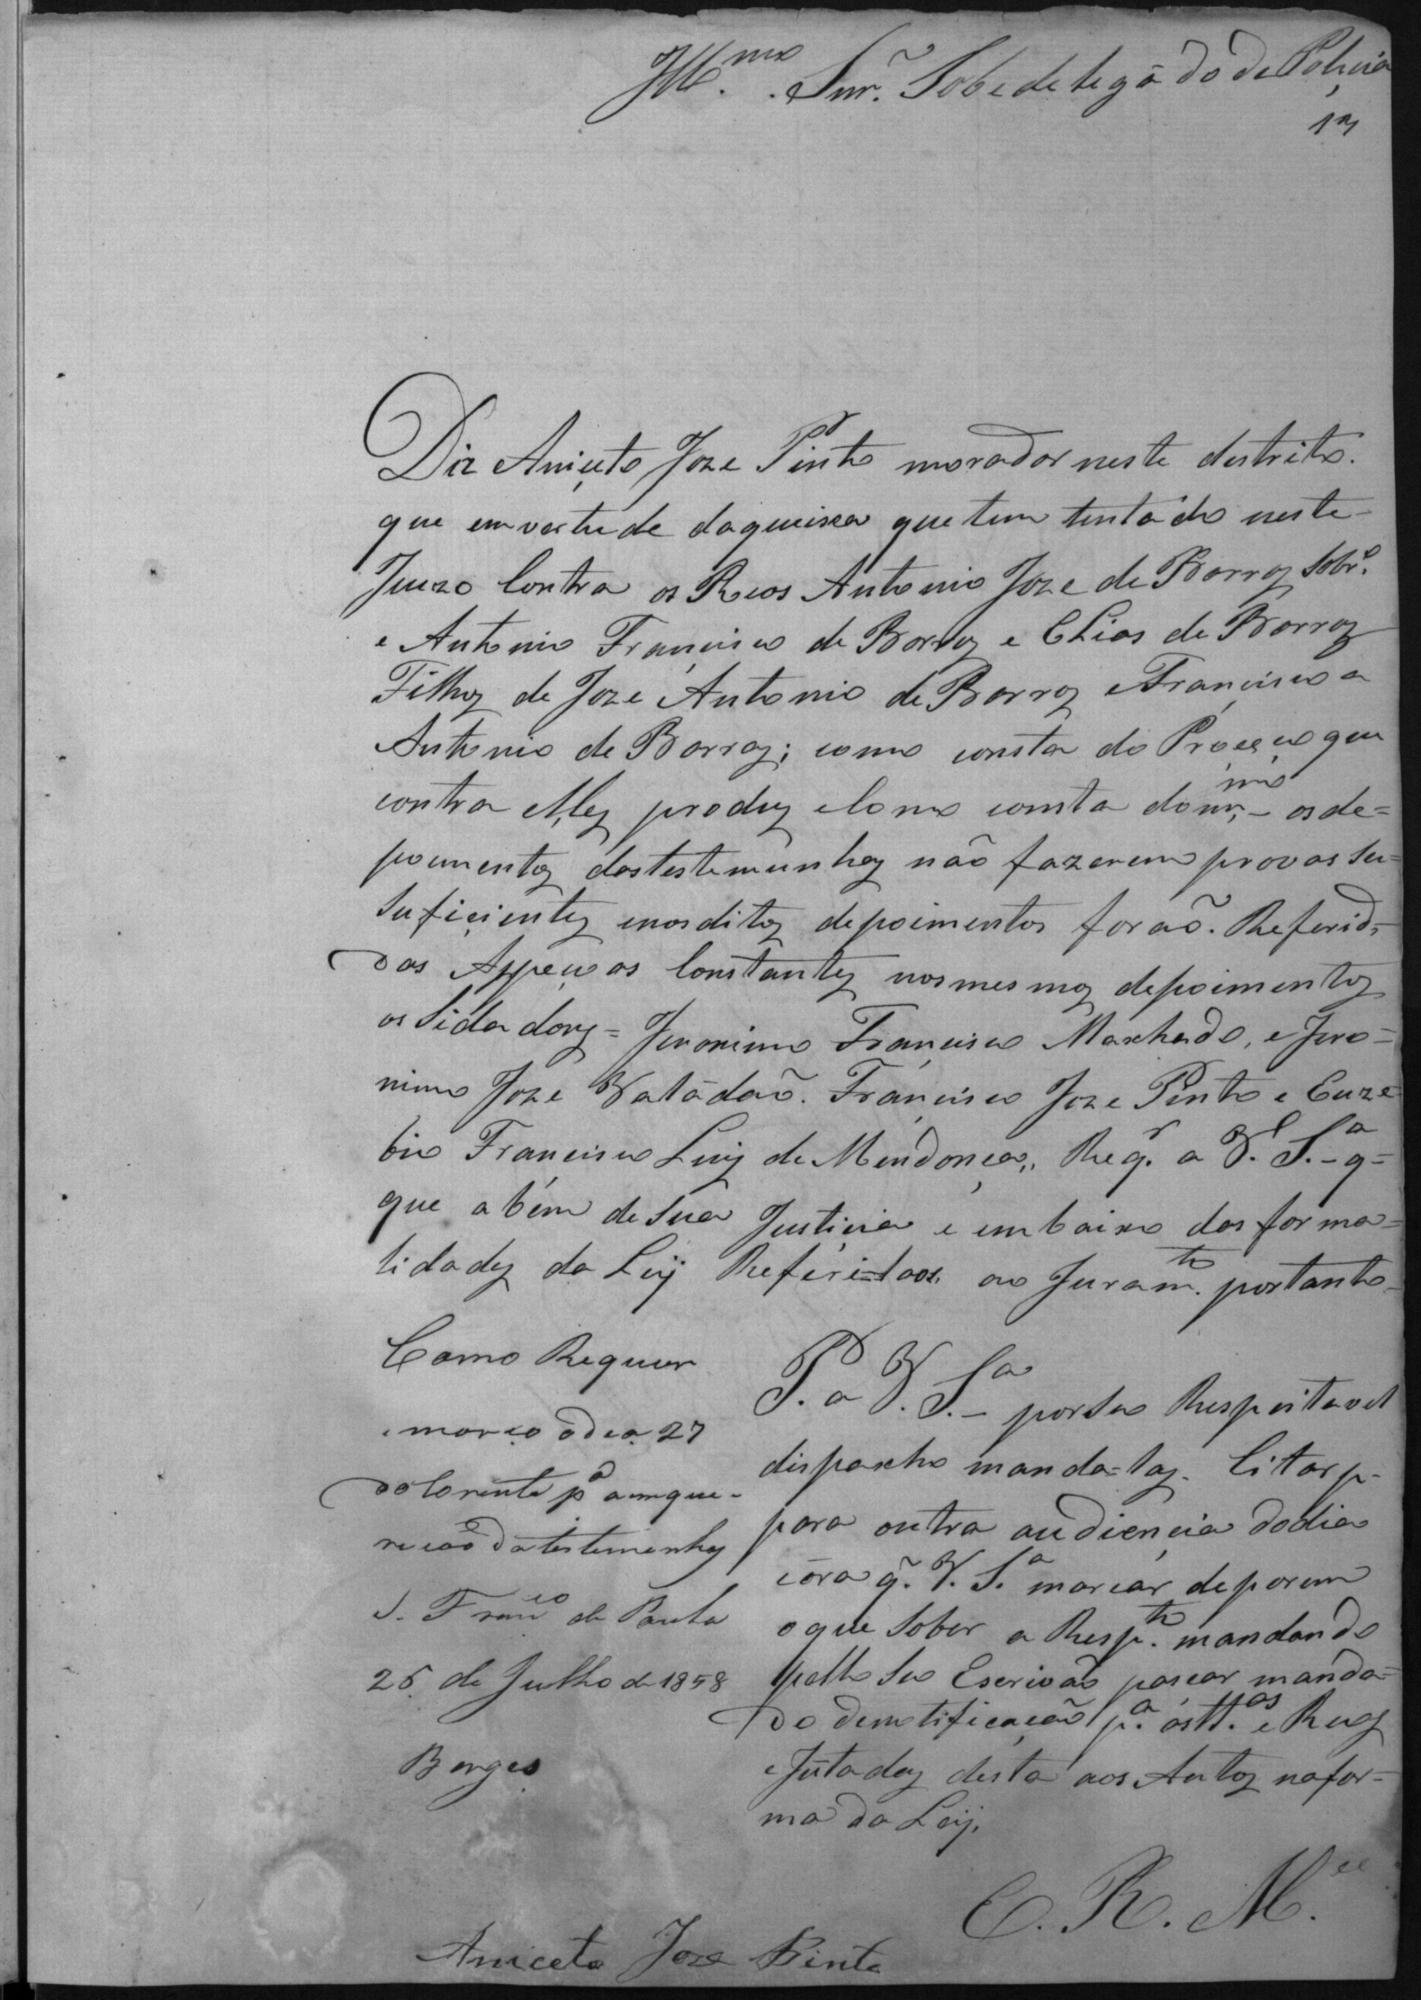 Ill.mo Snr. Sobedelegádo de Policia
13
Diz Aniceto Joze Pinto morador neste destrito.
que em vertude daqueixa que tem tentádo neste
Juizo Contra os Reos Antonio Joze de Barros Sobr.o
e Antonio Francisco de Barros e Elias de Barros
Filhos de Joze Antonio de Barros e Francisco a
Antonio de Barros; como consta do Proceço que
contra elles produz e Como consta do mmo os de=
poimentos das testemunhas não fazerem provas su=
suficientes e nos ditos depoimentos forão. Referid=
dos Appenços Constantes nos mesmos depoimentos
os Sidadons= Jeronimo Francisco Maxhado, e Jero=
nimo Joze Valádão. Francisco Joze Pinto e Euze
bio Francisco Luis de Mendonça,, Req.r a V. S.a q=
que a bém de sua Justicia e em baixo das forma=
lidades da Leij Referidaos. ao Juram.to portanto
Como Requer
e março o dea 27
do Corente p.a a inque-
rição da testemunhas
S. Fran.co de Paula
26 de Julho de 1858
Borges
P. a V. S.a por seo Respeitavel
dispaxho manda-las. Citar p-
para outra audiencia do dia
e óra q. V. S.a marcár deporem
o que Sober a Resp.to mandando
pello Seo Escrivão pasar manda=
do de notificação p.a ás tt.as e Reos
e Jūtados desta aos Autos na for=
ma da Leij.
E. R. M.ce
Aniceto Joze Pinto